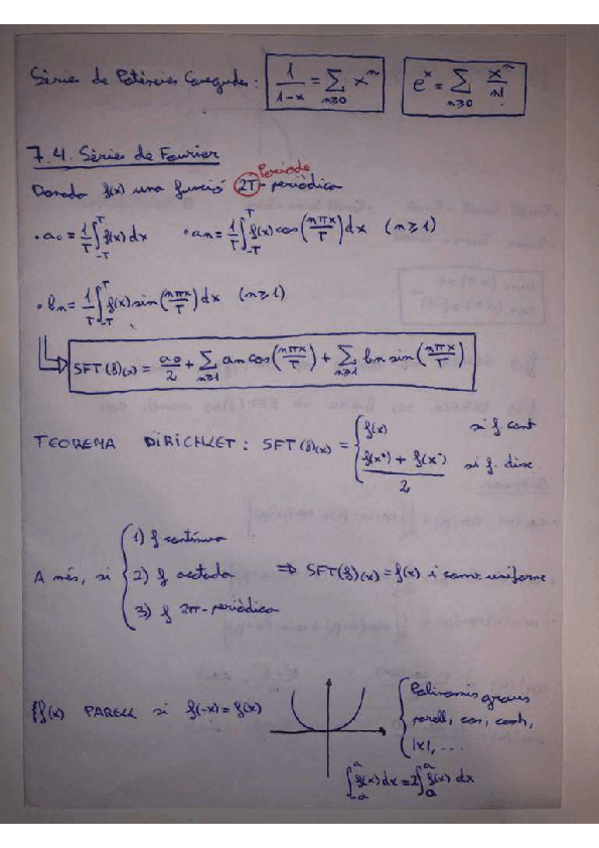 Sèries de Potències Conegudes: 1/(1-x) = Σ_{n≥0} x^n   e^x = Σ_{n≥0} x^n/n!
7.4. Sèries de Fourier
Periode
Donada f(x) una funció 2T-periòdica
• a₀ = 1/T ∫_{-T}^{T} f(x) dx   • an = 1/T ∫_{-T}^{T} f(x) cos(nπx/T) dx (n≥1)
• bn = 1/T ∫_{-T}^{T} f(x) sin(nπx/T) dx (n≥1)
SFT(f)(x) = a₀/2 + Σ_{n≥1} an cos(nπx/T) + Σ_{n≥1} bn sin(nπx/T)
TEOREMA DIRICHLET: SFT(f)(x) = { f(x) si f. cont
(f(x⁺) + f(x⁻))/2 si f. disc.
1) f contínua
A més, si { 2) f acotada ⇒ SFT(f)(x) = f(x) i conv. uniforme
3) f 2π-periòdica
f(x) PARELL si f(-x) = f(x)
{ Polinomis graus
parell, cos, cosh,
|x|, ...
∫_{-a}^{a} f(x) dx = 2∫_{a}^{a} f(x) dx